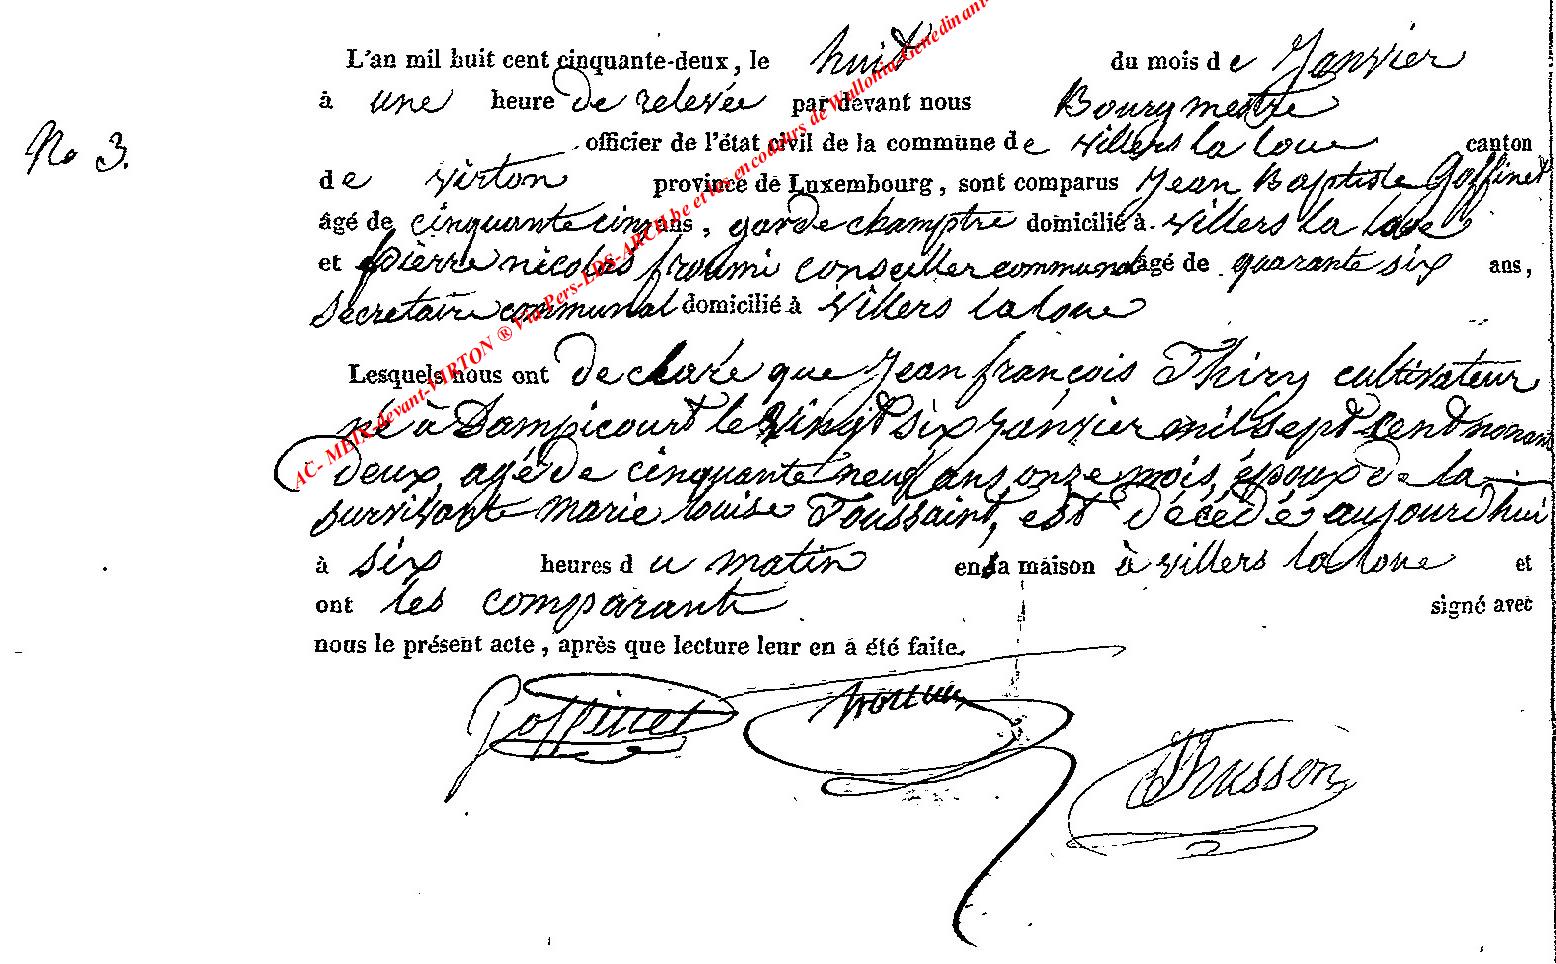 L'an mil huit cent cinquante-deux, le huit du mois de Janvier
à une heure de relevée par devant nous Bourgmestre
No 3. officier de l'état civil de la commune de Villers la loue canton
de Virton province de Luxembourg, sont comparus Jean Baptiste Goffinet
âgé de cinquante cinq ans, garde champtre domicilié à Villers la loue
et pierre nicolas froumi conseiller communal âgé de quarante six ans,
Secretaire communal domicilié à Villers la loue
Lesquels nous ont declaré que Jean françois Thiry cultivateur
né à Dampicourt le vingt six Janvier mil sept cent nonante
deux, agé de cinquante neuf ans onze mois, époux de la
survivante marie louise Toussaint, est décédé aujourd'hui
à six heures du matin en sa maison à villers la loue et
ont les comparant signé avec
nous le présent acte, après que lecture leur en a été faite.
Goffinet
Husson
AC- MEIX-devant-VIRTON ® Via Pers-EDS-ARCH.be et les encodeurs de Wallonia Genedinant